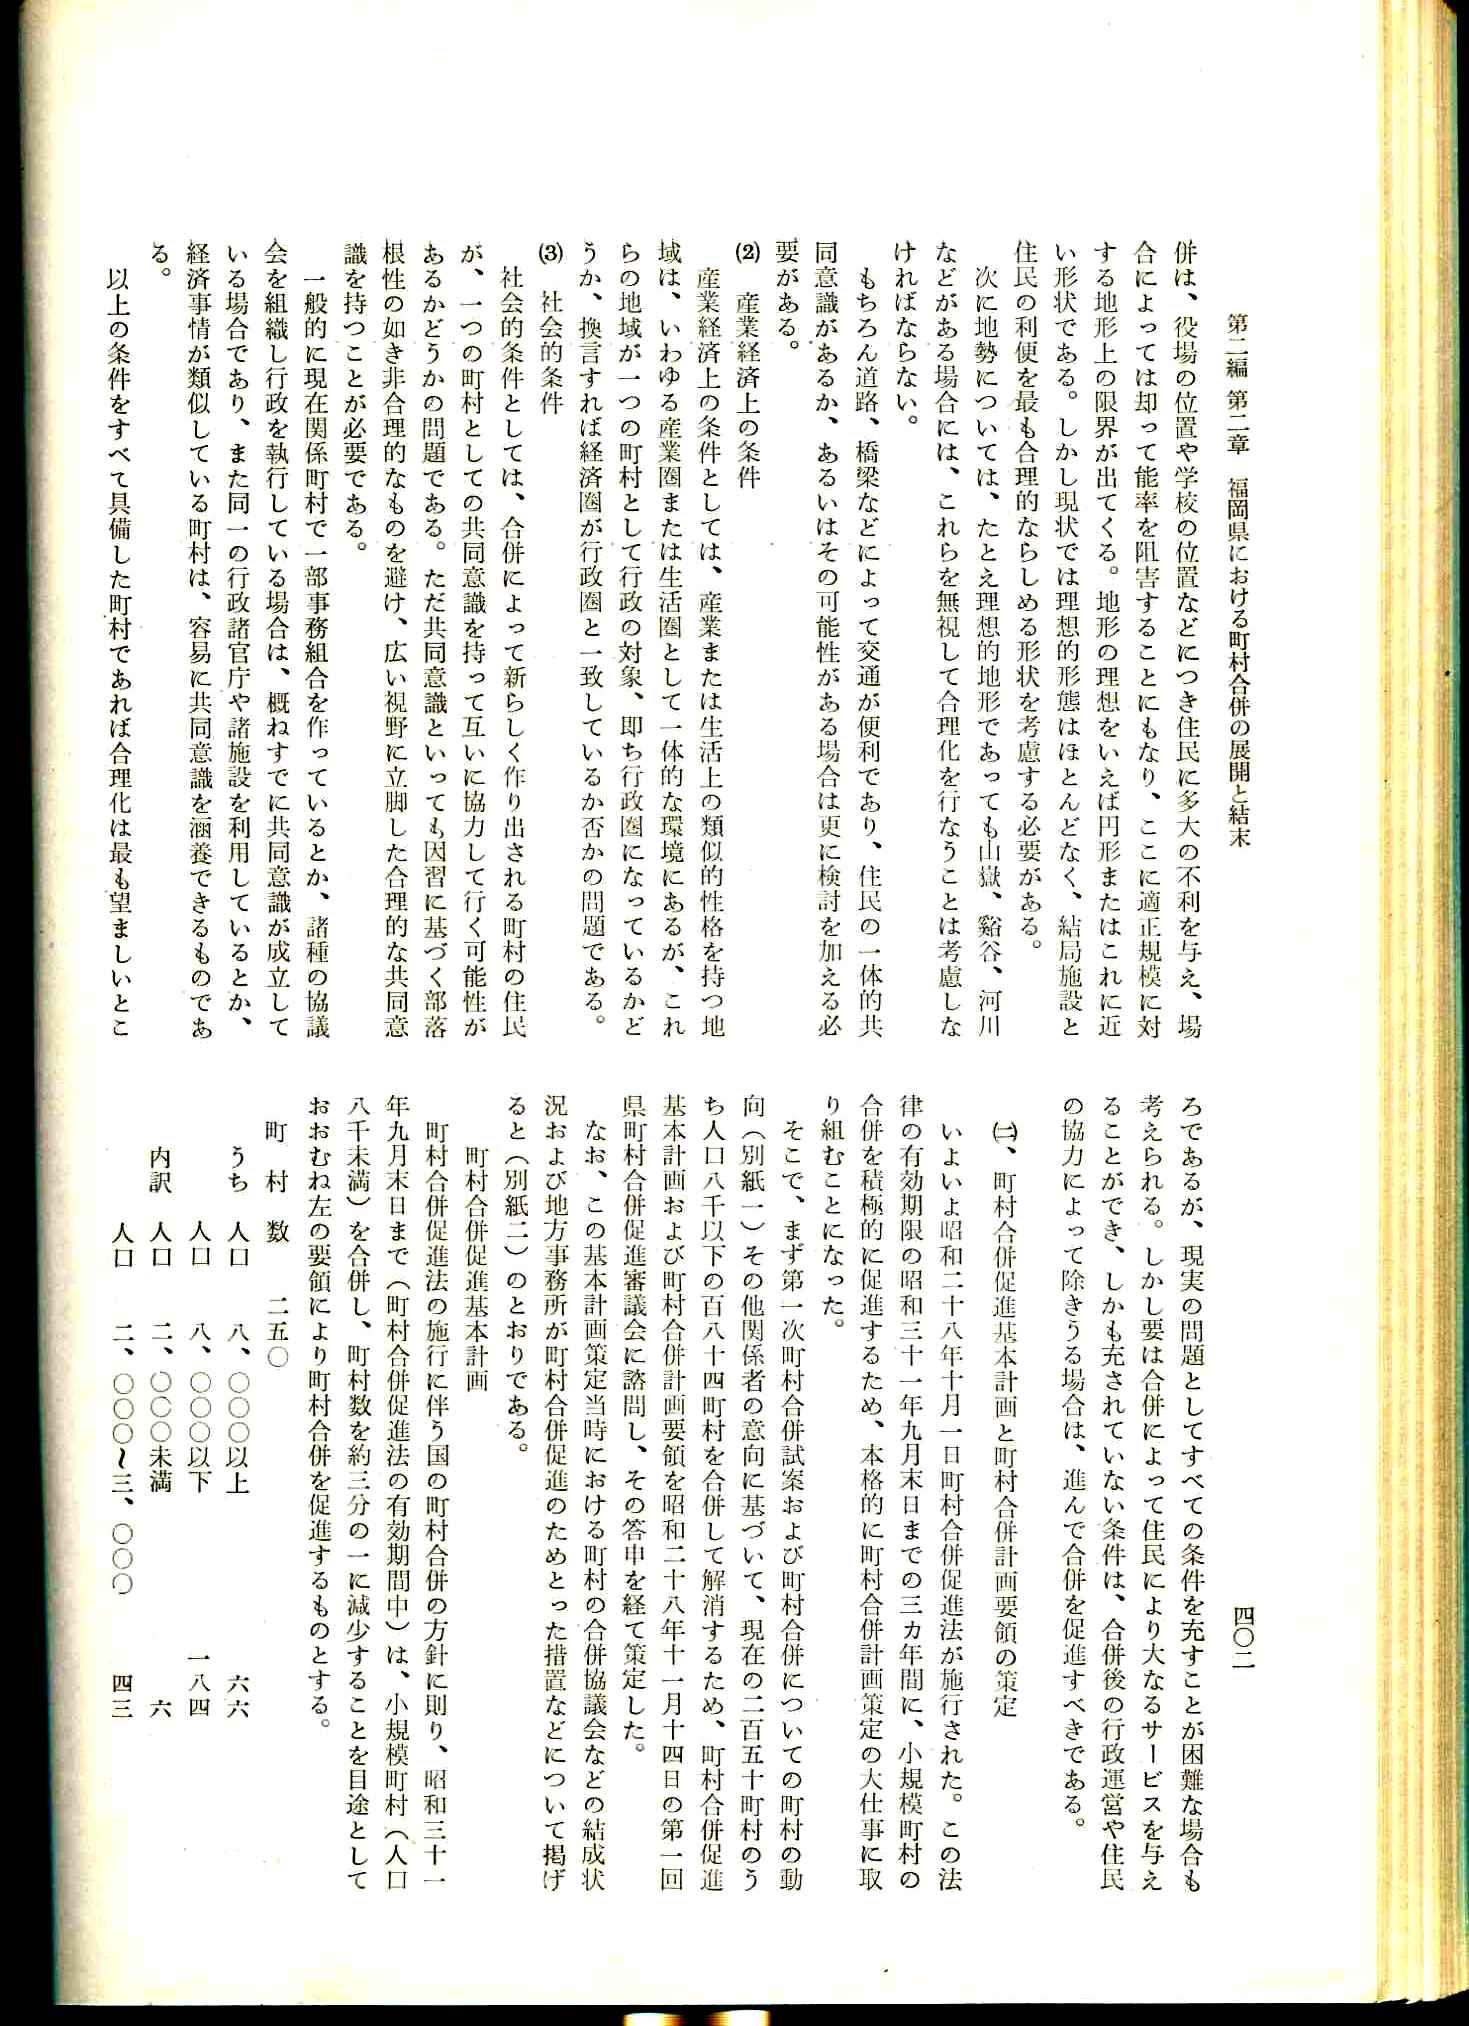 第二編 第二章　福岡県における町村合併の展開と結末
四〇二
併は、役場の位置や学校の位置などにつき住民に多大の不利を与え、場
合によっては却って能率を阻害することにもなり、ここに適正規模に対
する地形上の限界が出てくる。地形の理想をいえば円形またはこれに近
い形状である。しかし現状では理想的形態はほとんどなく、結局施設と
住民の利便を最も合理的ならしめる形状を考慮する必要がある。
次に地勢については、たとえ理想的地形であっても山嶽、谿谷、河川
などがある場合には、これらを無視して合理化を行なうことは考慮しな
ければならない。
もちろん道路、橋梁などによって交通が便利であり、住民の一体的共
同意識があるか、あるいはその可能性がある場合は更に検討を加える必
要がある。
⑵　産業経済上の条件
産業経済上の条件としては、産業または生活上の類似的性格を持つ地
域は、いわゆる産業圏または生活圏として一体的な環境にあるが、これ
らの地域が一つの町村として行政の対象、即ち行政圏になっているかど
うか、換言すれば経済圏が行政圏と一致しているか否かの問題である。
⑶　社会的条件
社会的条件としては、合併によって新らしく作り出される町村の住民
が、一つの町村としての共同意識を持って互いに協力して行く可能性が
あるかどうかの問題である。ただ共同意識といっても因習に基づく部落
根性の如き非合理的なものを避け、広い視野に立脚した合理的な共同意
識を持つことが必要である。
一般的に現在関係町村で一部事務組合を作っているとか、諸種の協議
会を組織し行政を執行している場合は、概ねすでに共同意識が成立して
いる場合であり、また同一の行政諸官庁や諸施設を利用しているとか、
経済事情が類似している町村は、容易に共同意識を涵養できるものであ
る。
以上の条件をすべて具備した町村であれば合理化は最も望ましいとこ
ろであるが、現実の問題としてすべての条件を充すことが困難な場合も
考えられる。しかし要は合併によって住民により大なるサービスを与え
ることができ、しかも充されていない条件は、合併後の行政運営や住民
の協力によって除きうる場合は、進んで合併を促進すべきである。
㈡、町村合併促進基本計画と町村合併計画要領の策定
いよいよ昭和二十八年十月一日町村合併促進法が施行された。この法
律の有効期限の昭和三十一年九月末日までの三カ年間に、小規模町村の
合併を積極的に促進するため、本格的に町村合併計画策定の大仕事に取
り組むことになった。
そこで、まず第一次町村合併試案および町村合併についての町村の動
向（別紙一）その他関係者の意向に基づいて、現在の二百五十町村のう
ち人口八千以下の百八十四町村を合併して解消するため、町村合併促進
基本計画および町村合併計画要領を昭和二十八年十一月十四日の第一回
県町村合併促進審議会に諮問し、その答申を経て策定した。
なお、この基本計画策定当時における町村の合併協議会などの結成状
況および地方事務所が町村合併促進のためとった措置などについて掲げ
ると（別紙二）のとおりである。
町村合併促進基本計画
町村合併促進法の施行に伴う国の町村合併の方針に則り、昭和三十一
年九月末日まで（町村合併促進法の有効期間中）は、小規模町村（人口
八千未満）を合併し、町村数を約三分の一に減少することを目途として
おおむね左の要領により町村合併を促進するものとする。
町　村　数　　二五〇
うち　人口　　八、〇〇〇以上　　六六
人口　　八、〇〇〇以下　　一八四
内訳　人口　　二、〇〇〇未満　　六
人口　　二、〇〇〇～三、〇〇〇　　四三